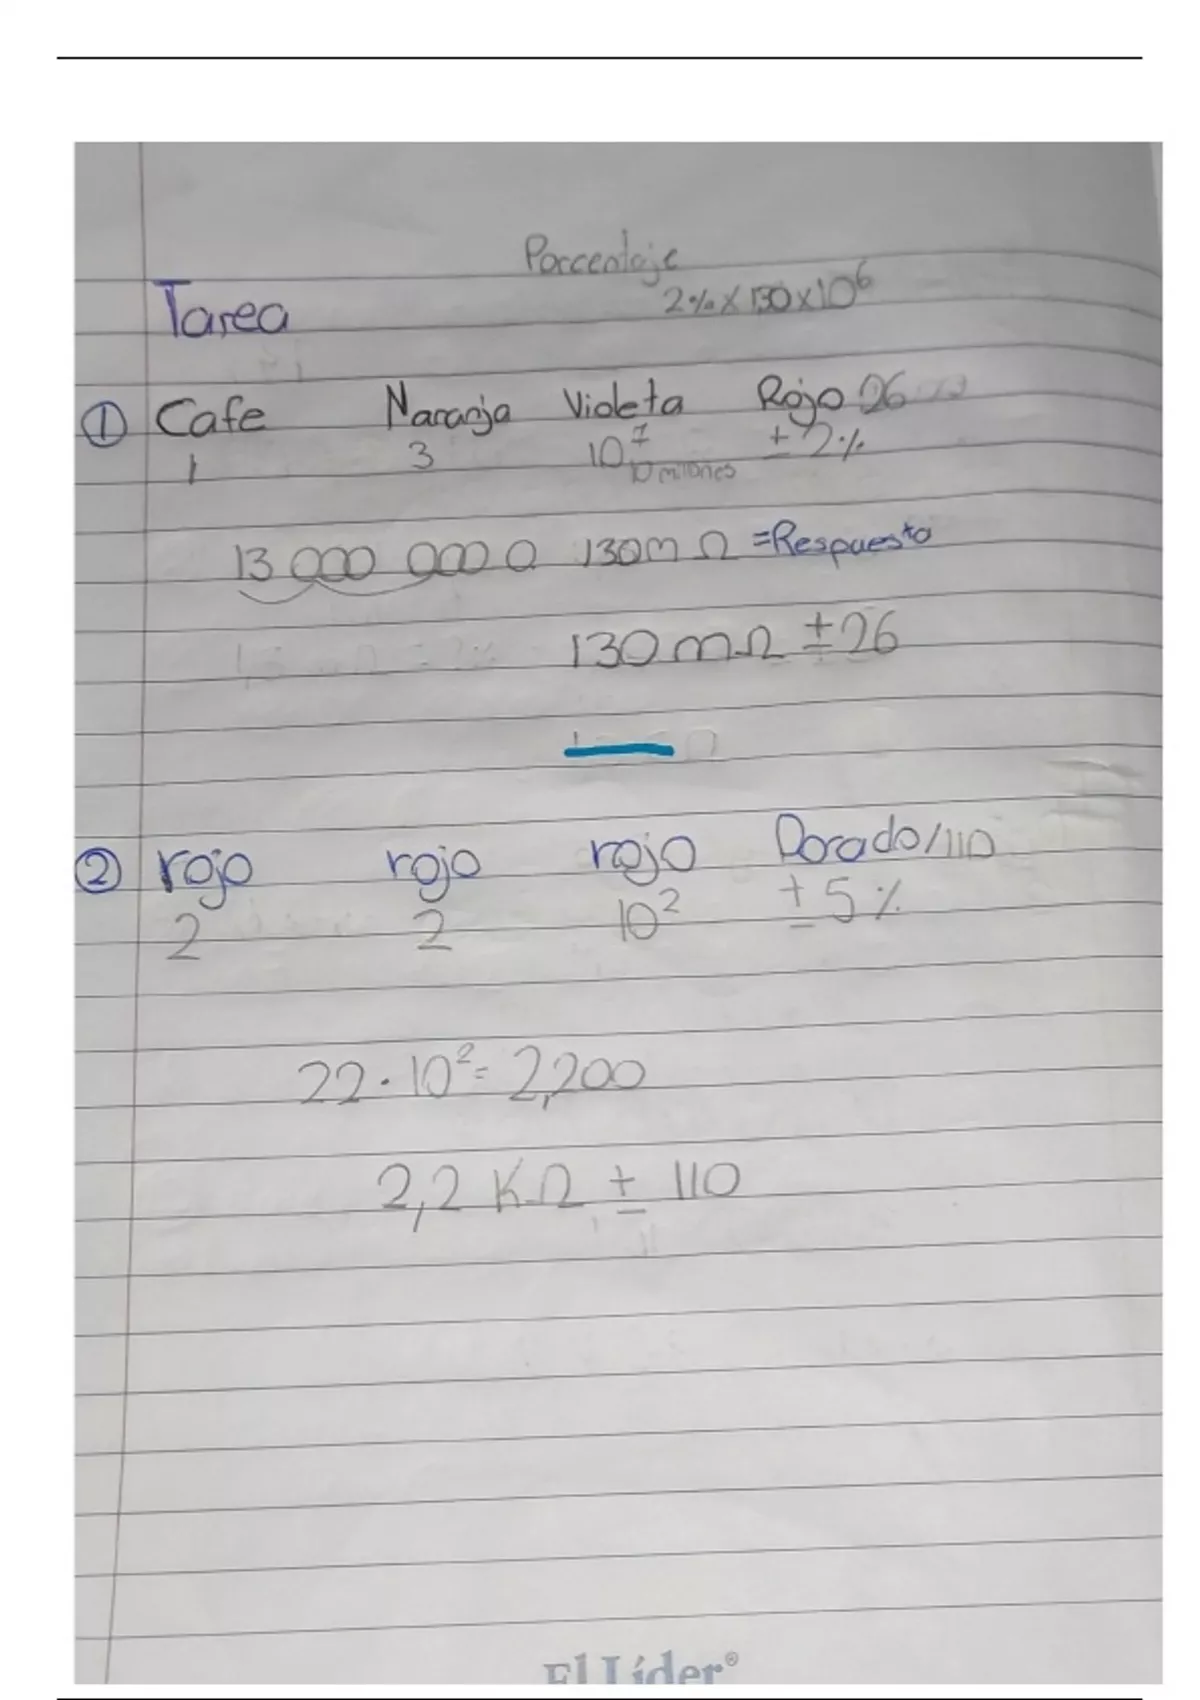 Porcentaje
Tarea 2% X 130 x 10⁶
① Cafe Naranja Violeta Rojo 26
1 3 10⁷ ± 2%
10 millones
13 000 000 0 130m Ω =Respuesta
130 mΩ ± 26
② rojo rojo rojo Dorado/110
2 2 10² ± 5%
22 · 10² = 2,200
2,2 KΩ ± 110
El Líder®